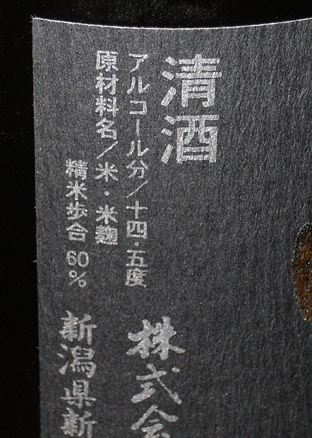 清酒
アルコール分/十四・五度
原材料名/米・米麹
精米歩合 60%
株式会
新潟県新